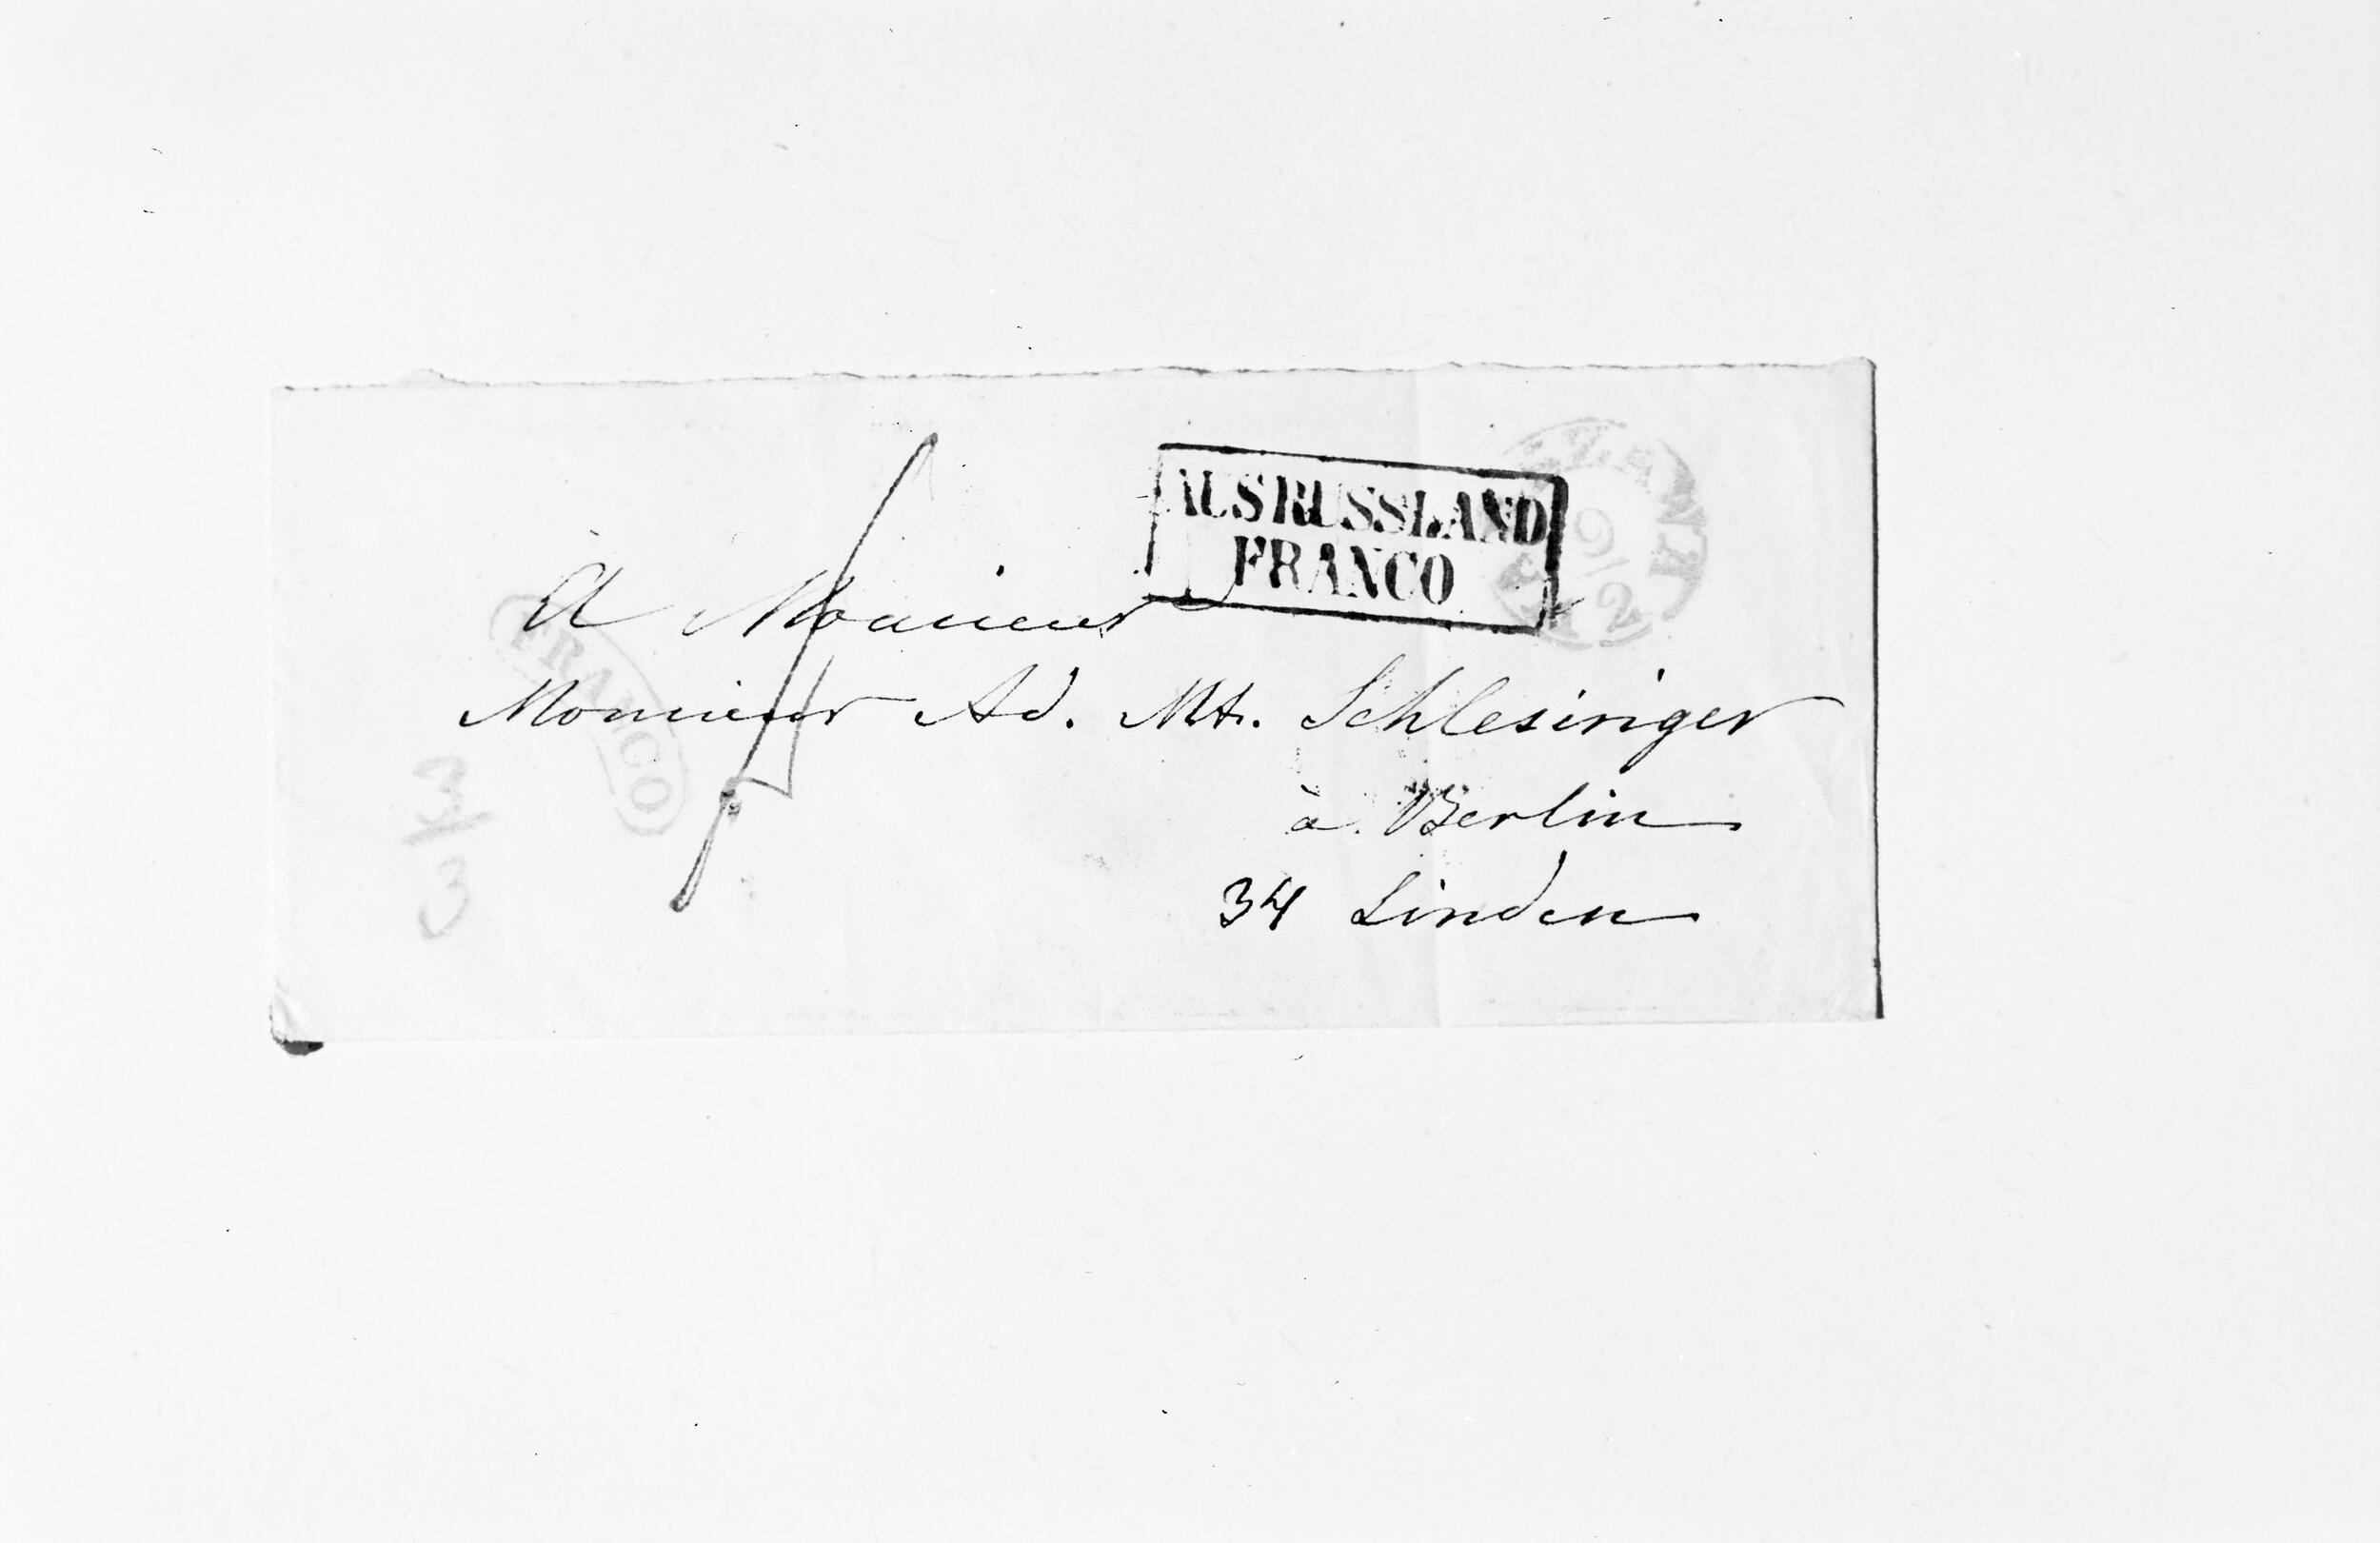 AUS RUSSLAND
FRANCO
9/2
A Monsieur
FRANCO
Monsieur Ad. Mt. Schlesinger
à Berlin
34 Linden
3
3